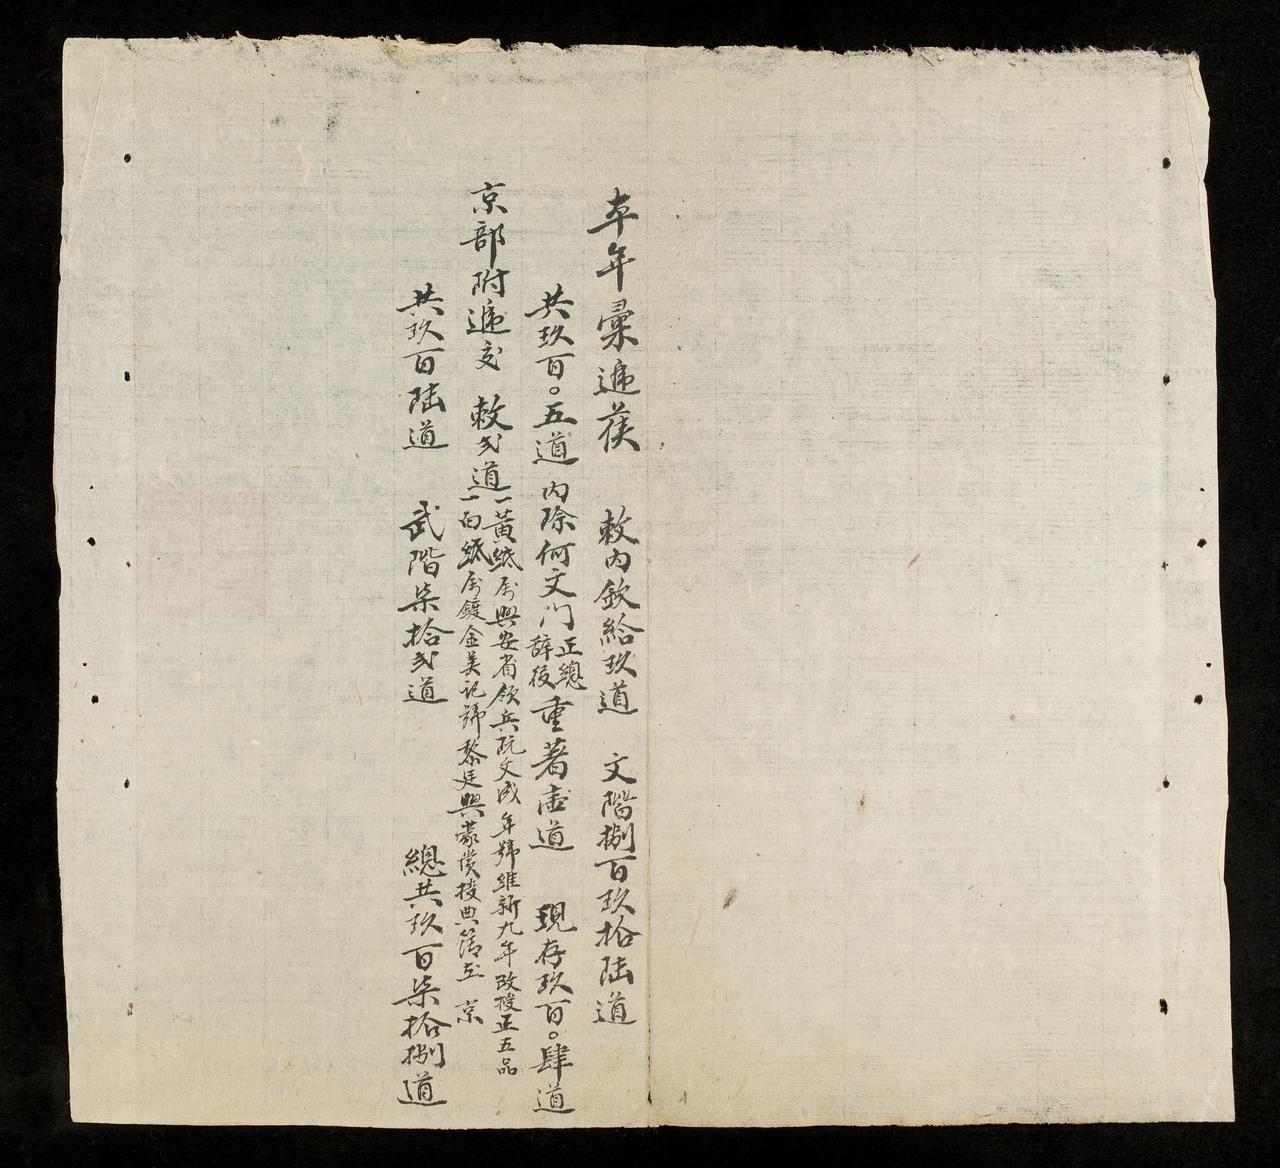 本年彙遞蔟 敕內欽給玖道 文階捌百玖拾陸道
共玖百。五道內除何文門正總辞後重著壹道 現存玖百。肆道
京部附遞交 敕弐道一黃紙属興安省領兵阮文成年號維新九年改授正五品
一白紙属鍍金美記號黎廷興蒙賞授典簿 京
共玖百陸道 武階柒拾弐道 總共玖百柒拾捌道